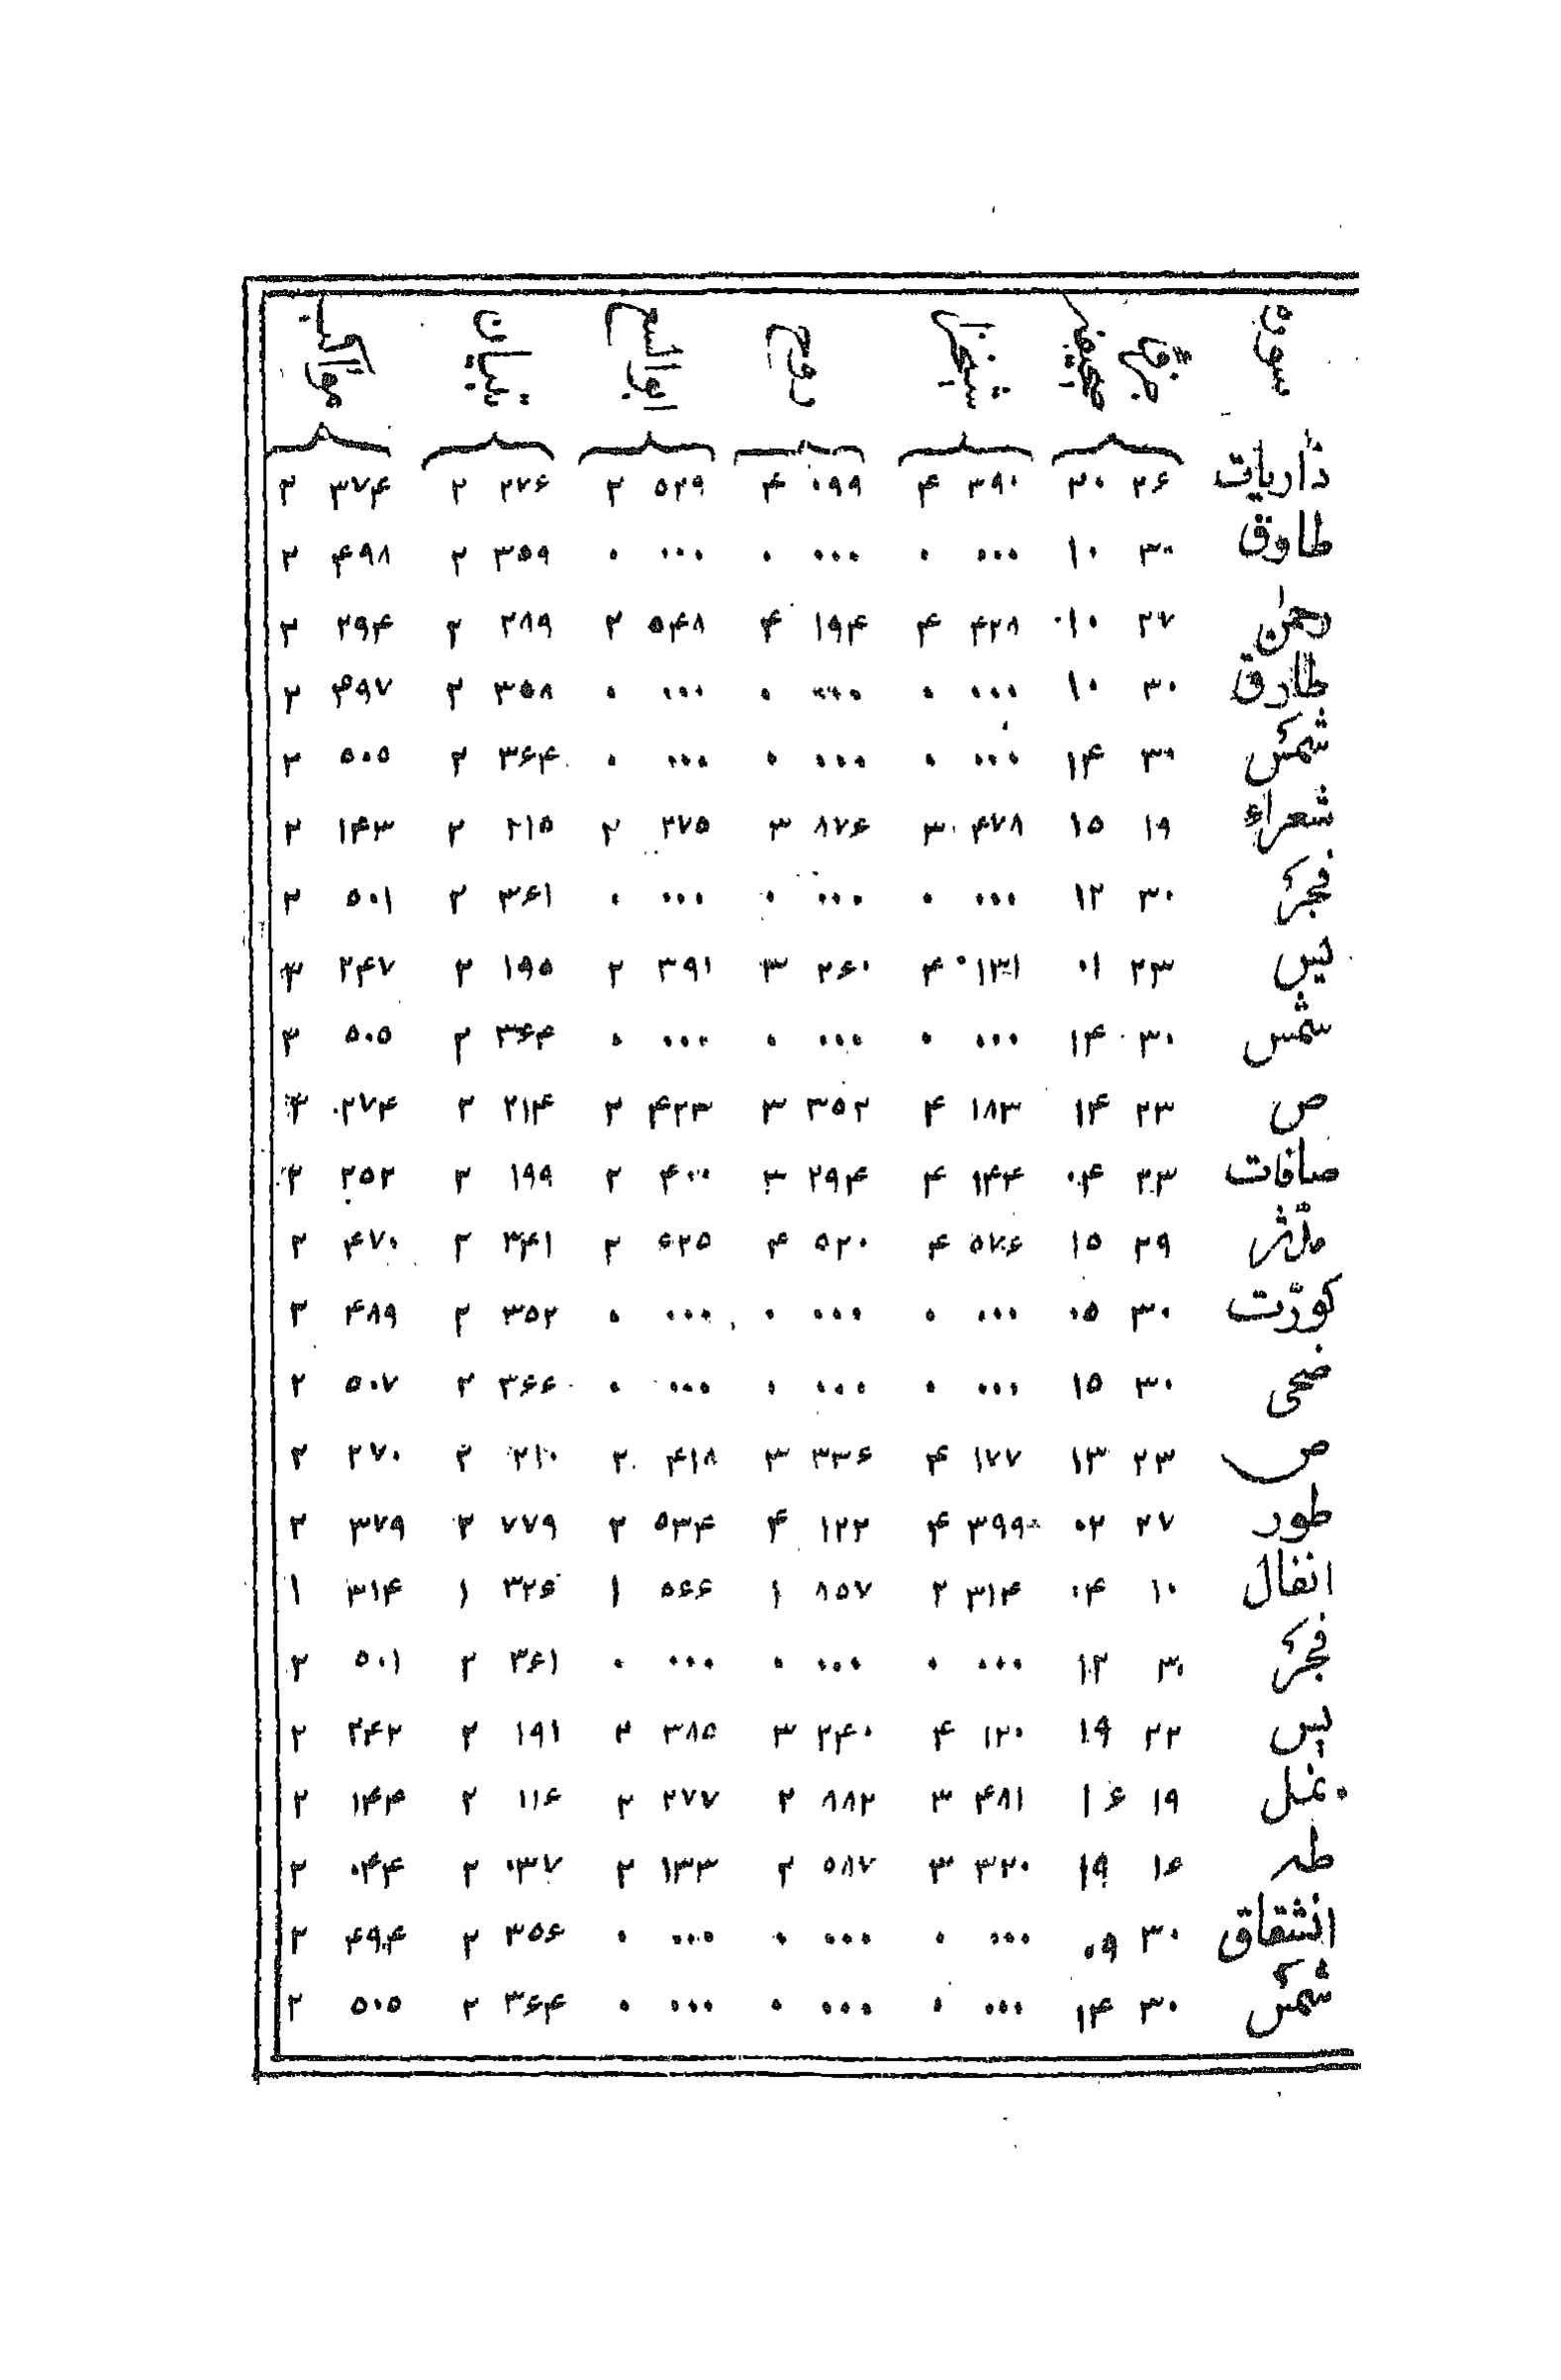 سوره جزء صحیفه شیخزاده روح ابوالسعود تبیان مواکب
ذاریات ۲۶ ۲۰ ۳۹۰ ۴ ۰۹۹ ۴ ۵۲۹ ۲ ۲۷۶ ۲ ۳۷۴ ۲
طاوق ۳۰ ۱۰ ۰۰۰ ۰ ۰۰۰ ۰ ۰۰۰ ۰ ۳۵۹ ۲ ۴۹۸ ۲
رحمن ۲۷ ۱۰ ۴۲۸ ۴ ۱۹۴ ۴ ۵۴۸ ۲ ۲۸۹ ۲ ۲۹۴ ۲
طارق ۳۰ ۱۰ ۰۰۰ ۰ ۰۰۰ ۰ ۰۰۰ ۰ ۳۵۸ ۲ ۴۹۷ ۲
شمس ۳۰ ۱۴ ۰۰۰ ۰ ۰۰۰ ۰ ۰۰۰ ۰ ۳۶۴ ۲ ۵۰۵ ۲
شعراء ۱۹ ۱۵ ۴۷۸ ۳ ۸۷۶ ۳ ۲۷۵ ۲ ۲۱۵ ۲ ۱۴۳ ۲
فجر ۳۰ ۱۲ ۰۰۰ ۰ ۰۰۰ ۰ ۰۰۰ ۰ ۳۶۱ ۲ ۵۰۱ ۲
یس ۲۳ ۰۱ ۱۳۱ ۴ ۲۶۰ ۳ ۳۹۱ ۲ ۱۹۵ ۲ ۲۴۷ ۳
شمس ۳۰ ۱۴ ۰۰۰ ۰ ۰۰۰ ۰ ۰۰۰ ۰ ۳۶۴ ۲ ۵۰۵ ۲
ص ۲۳ ۱۴ ۱۸۳ ۴ ۳۵۲ ۳ ۴۲۳ ۲ ۲۱۴ ۲ ۲۷۴ ۲
صافات ۲۳ ۰۴ ۱۴۴ ۴ ۲۹۴ ۳ ۴۰۰ ۲ ۱۹۹ ۲ ۲۵۲ ۲
مدّثر ۲۹ ۱۵ ۵۷۶ ۴ ۵۲۰ ۴ ۶۲۵ ۲ ۳۴۱ ۲ ۴۷۰ ۲
کورّت ۳۰ ۰۵ ۰۰۰ ۰ ۰۰۰ ۰ ۰۰۰ ۰ ۳۵۲ ۲ ۴۸۹ ۲
ضحی ۳۰ ۱۵ ۰۰۰ ۰ ۰۰۰ ۰ ۰۰۰ ۰ ۳۶۶ ۲ ۵۰۷ ۲
ص ۲۳ ۱۳ ۱۷۷ ۴ ۳۳۶ ۳ ۴۱۸ ۲ ۲۱۰ ۲ ۲۷۰ ۲
طور ۲۷ ۰۲ ۳۹۹ ۴ ۱۲۲ ۴ ۵۳۴ ۲ ۷۷۹ ۲ ۳۷۹ ۲
انفال ۱۰ ۰۴ ۳۱۴ ۲ ۸۵۷ ۱ ۵۶۶ ۱ ۳۲۶ ۱ ۳۱۴ ۱
فجر ۳۰ ۱۲ ۰۰۰ ۰ ۰۰۰ ۰ ۰۰۰ ۰ ۳۶۱ ۲ ۵۰۱ ۲
یس ۲۲ ۱۹ ۱۲۰ ۴ ۲۴۰ ۳ ۳۸۵ ۲ ۱۹۱ ۲ ۲۴۲ ۲
نمل ۱۹ ۱۶ ۴۸۱ ۳ ۸۸۲ ۲ ۲۷۷ ۲ ۱۱۶ ۲ ۱۴۴ ۲
طه ۱۶ ۱۹ ۳۲۰ ۳ ۵۸۷ ۲ ۱۳۳ ۲ ۰۳۷ ۲ ۰۴۴ ۲
انشقاق ۳۰ ۰۹ ۰۰۰ ۰ ۰۰۰ ۰ ۰۰۰ ۰ ۳۵۶ ۲ ۴۹۴ ۲
شمس ۳۰ ۱۴ ۰۰۰ ۰ ۰۰۰ ۰ ۰۰۰ ۰ ۳۶۴ ۲ ۵۰۵ ۲